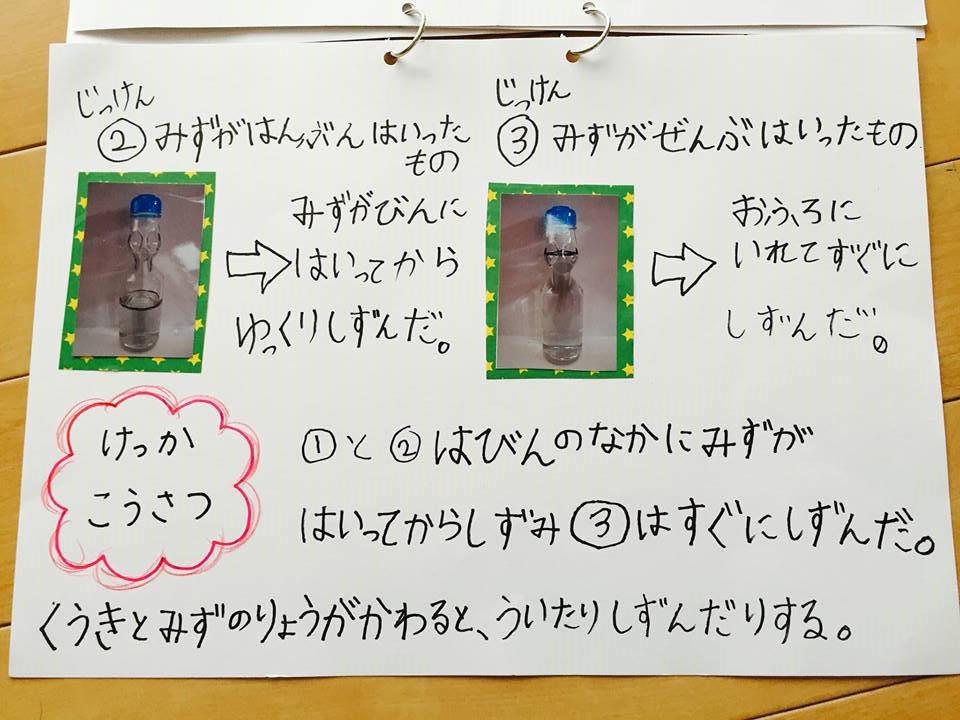 じっけん
②みずがはんぶんはいった
もの
みずがびんに
はいってから
ゆっくりしずんだ。
じっけん
③みずがぜんぶはいったもの
おふろに
いれてすぐに
しずんだ。
けっか
こうさつ
①と②はびんのなかにみずが
はいってからしずみ③はすぐにしずんだ。
くうきとみずのりょうがかわると、ういたりしずんだりする。